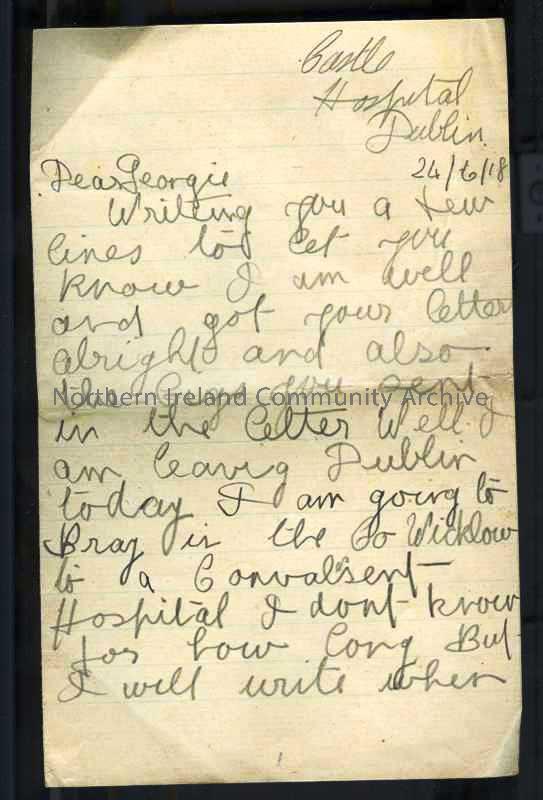 Castle
Hospital
Dublin.
24/6/18
Dear Georgie
Writing you a few
lines to let you
know I am well
and got your letter
alright and also
the you sent
Northern Ireland Community Archive
in the letter Well I
am leavig Dublin
today I am going to
Bray in the Co Wicklow
to a Convalsent
Hospital I dont know
for how long But
I will write when
1